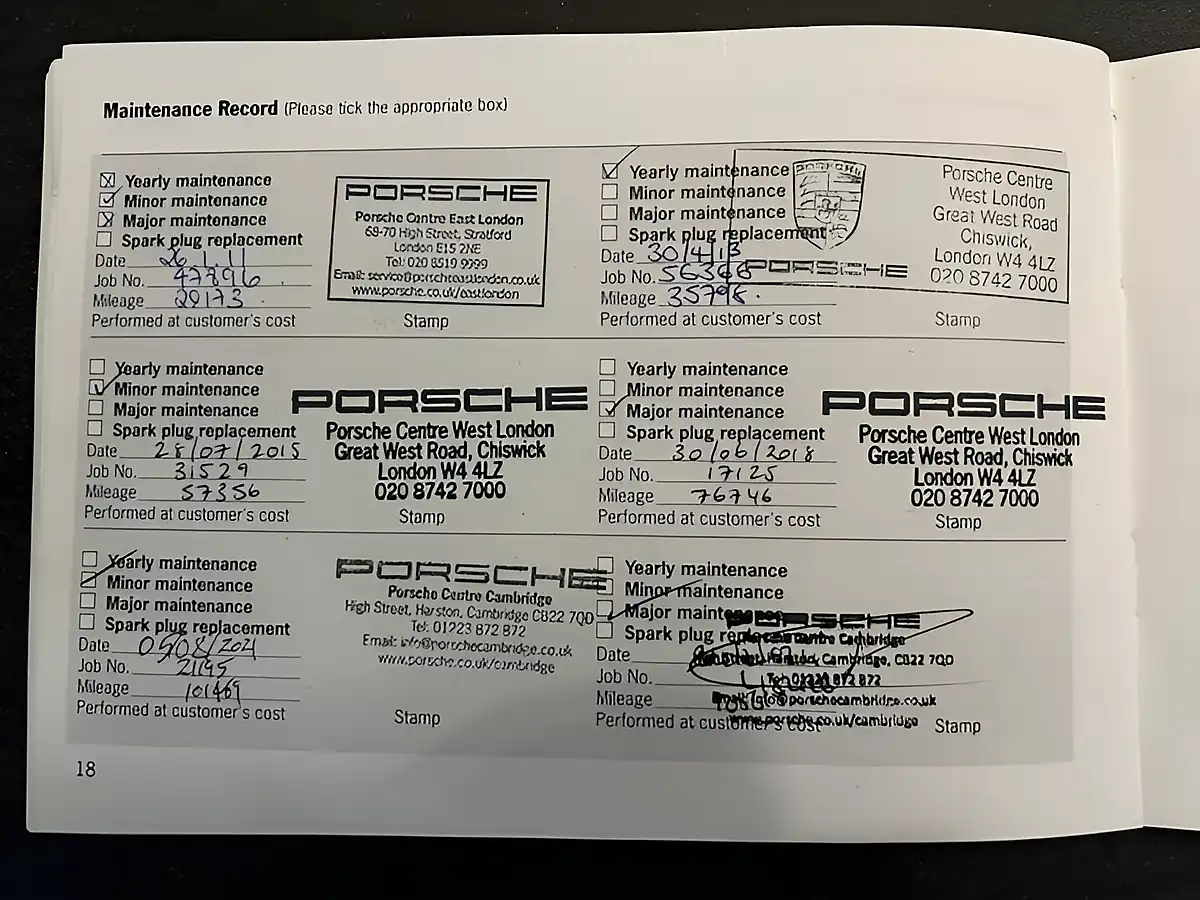 Maintenance Record (Please tick the appropriate box)
Yearly maintenance
Minor maintenance
Major maintenance
Spark plug replacement
Date 26.1.11
Job No. 47896
Mileage
Performed at customer's cost
PORSCHE
Porsche Centre East London
68-70 High Street, Stratford
London E15 2NE
Tel: 020 8519 9999
Email: service@porscheeastlondon.co.uk
www.porsche.co.uk/eastlondon
Stamp
Yearly maintenance
Minor maintenance
Major maintenance
Spark plug replacement
Date 30/4/13
Job No. 56366
Mileage 35798.
Performed at customer's cost
PORSCHE
PORSCHE
Porsche Centre
West London
Great West Road
Chiswick,
London W4 4LZ
020 8742 7000
Stamp
Yearly maintenance
Minor maintenance
Major maintenance
Spark plug replacement
Date 28/07/2015
Job No. 31529
Mileage 57356
Performed at customer's cost
PORSCHE
Porsche Centre West London
Great West Road, Chiswick
London W4 4LZ
020 8742 7000
Stamp
Yearly maintenance
Minor maintenance
Major maintenance
Spark plug replacement
Date 30/06/2018
Job No. 17125
Mileage 76746
Performed at customer's cost
PORSCHE
Porsche Centre West London
Great West Road, Chiswick
London W4 4LZ
020 8742 7000
Stamp
Yearly maintenance
Minor maintenance
Major maintenance
Spark plug replacement
Date 05/08/2021
Job No. 21195
Mileage 101469
Performed at customer's cost
PORSCHE
Porsche Centre Cambridge
High Street, Harston, Cambridge CB22 7QD
Tel: 01223 872 872
Email: info@porschecambridge.co.uk
www.porsche.co.uk/cambridge
Stamp
Yearly maintenance
Minor maintenance
Major maintenance
Spark plug replacement
Date
Job No.
Mileage
Performed at customer's cost
PORSCHE
Centre Cambridge
Cambridge, CB22 7QD
Tel: 01223 872 872
Email: info@porschecambridge.co.uk
www.porsche.co.uk/cambridge
Stamp
18